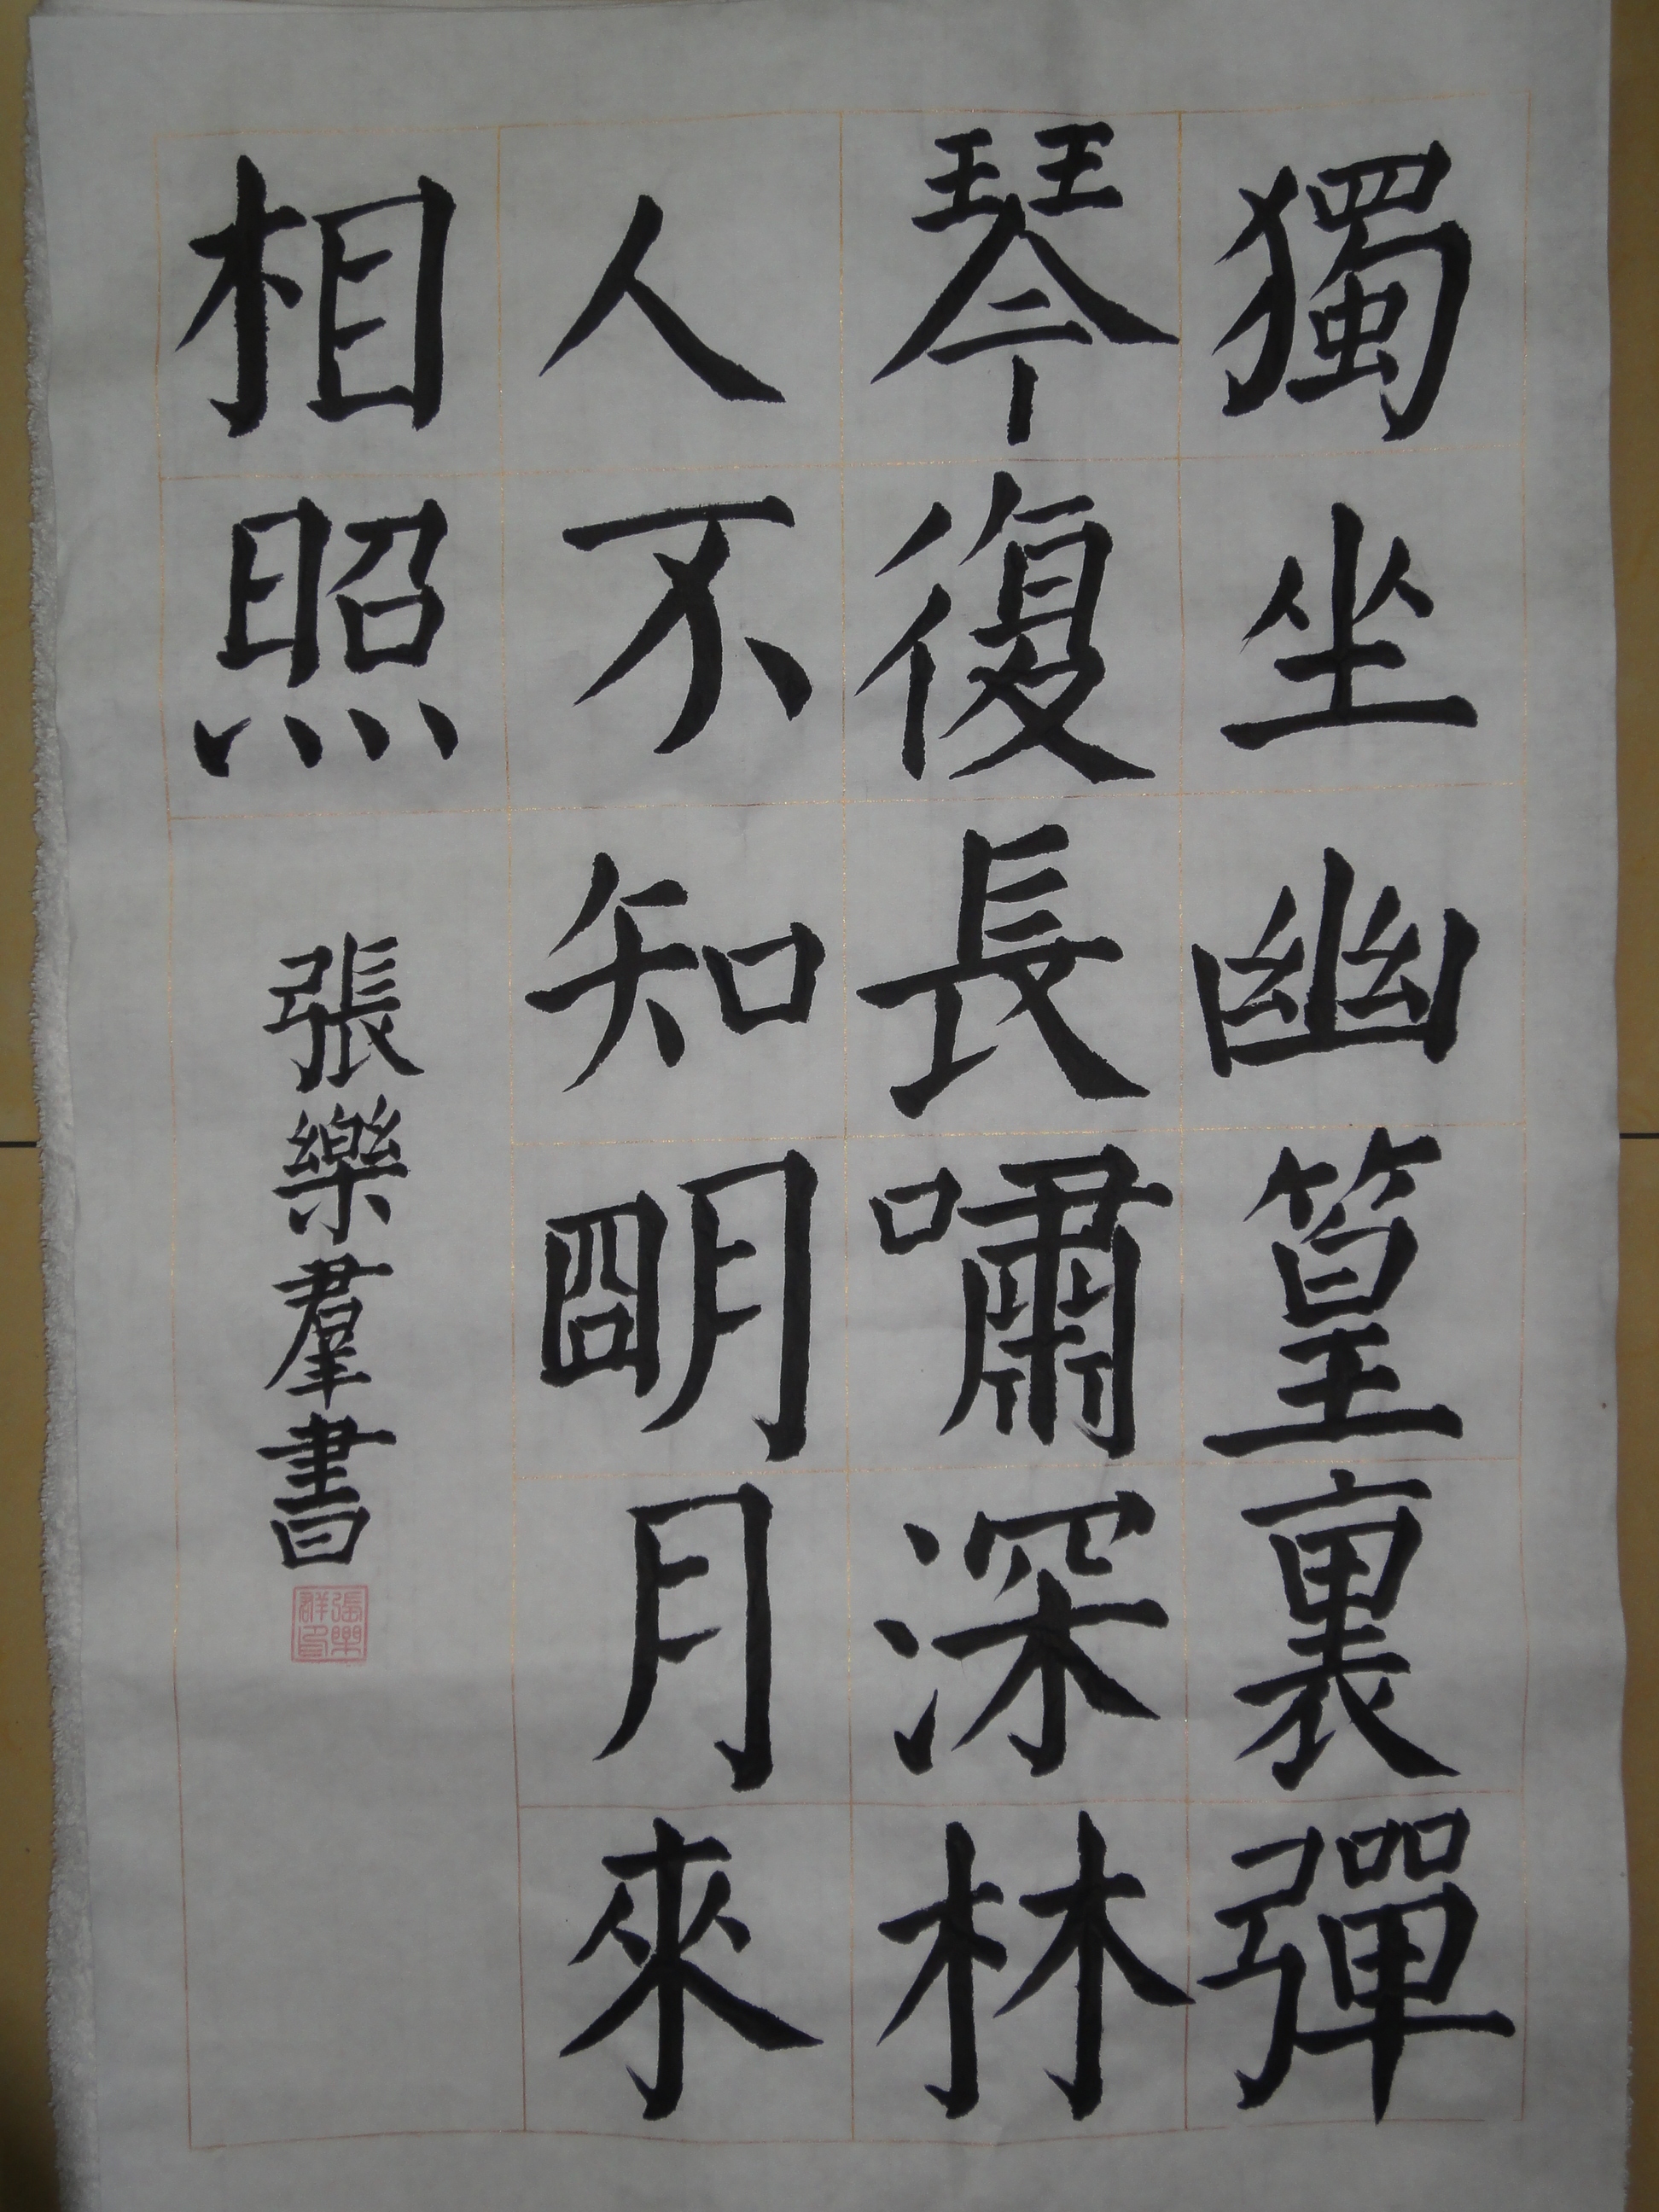 獨坐幽篁裏彈
琴復長嘯深林
人不知朙月來
相照
張樂羣書
張樂群印